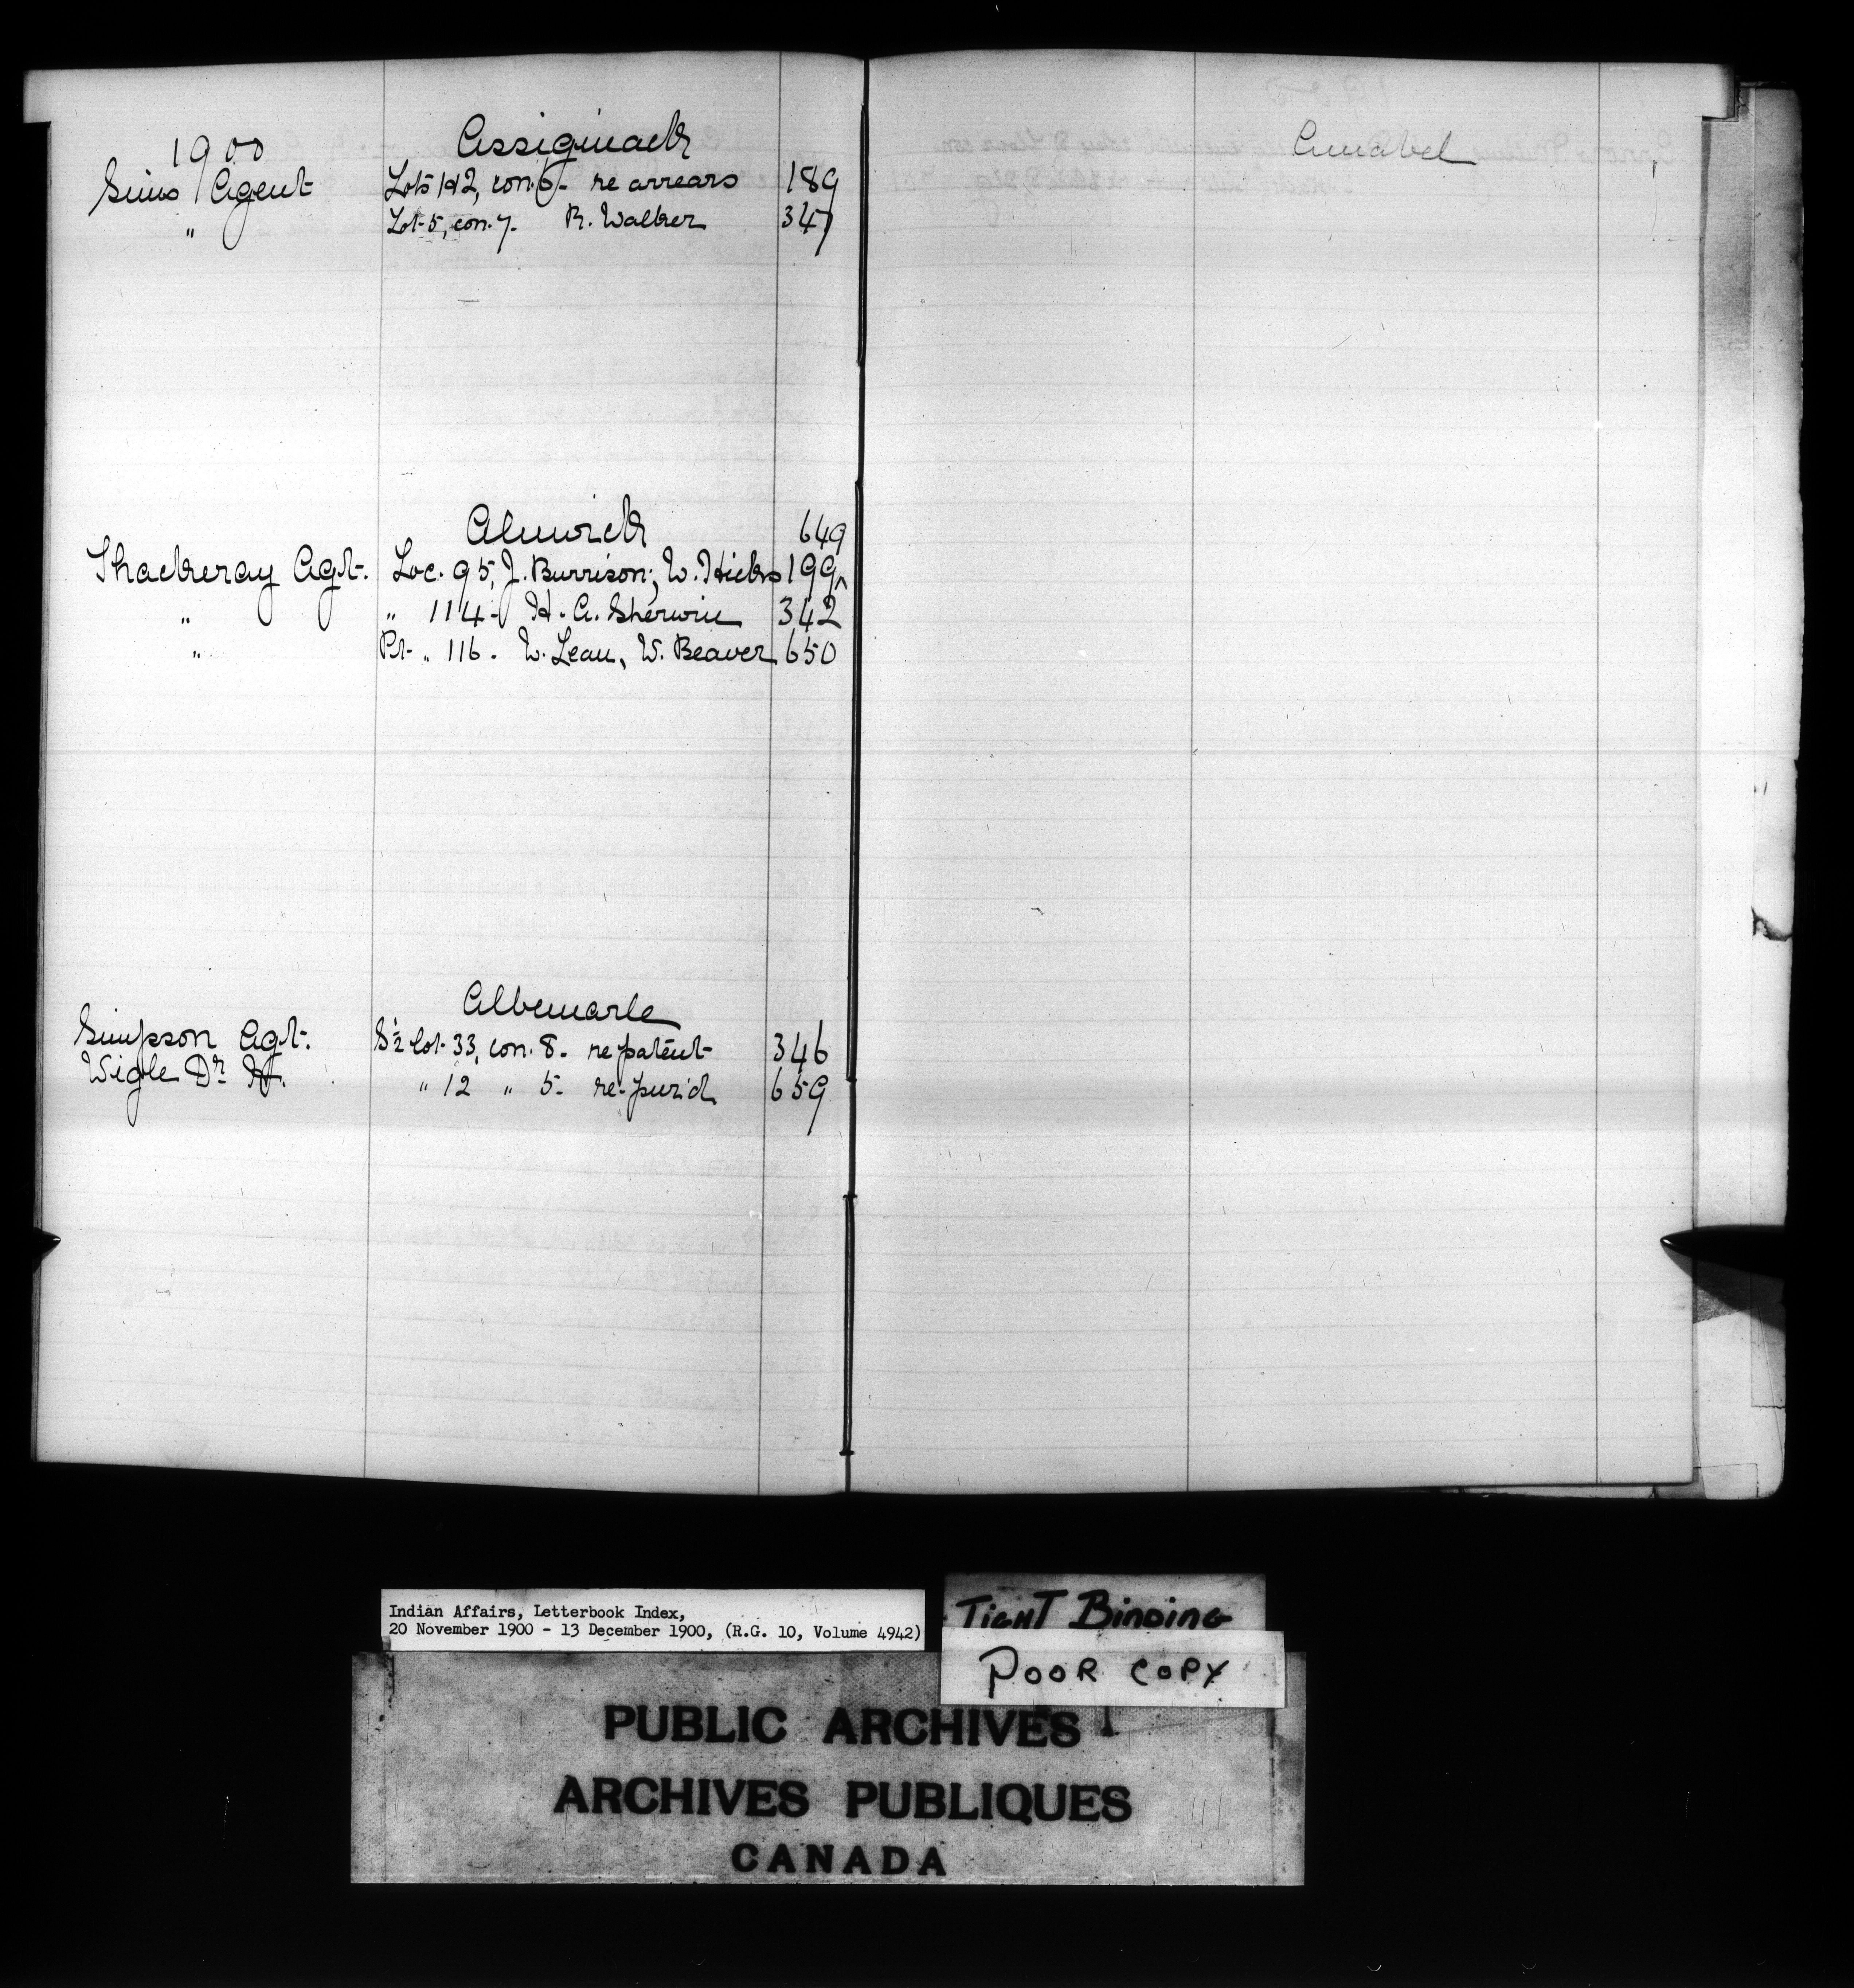 1900
Assiginack
Sims Agent Lots 1 & 2, con. 6 - re arrears 189
" Lot 5, con. 7. R. Walker 347
Alnwick 649
Thackeray Agt. Loc. 95, J. Burrison; W. Hicks 199^
" " 114 - H. A. Sherwin 342
" Pt " 116 - W. Lean, W. Beaver 650
Albemarle
Simpson Agt. S½ lot 33, con. 8 - re patent 346
Wigle Dr. H. " 12 " 5 - re purch 659
Amabel
Indian Affairs, Letterbook Index,
20 November 1900 - 13 December 1900, (R.G. 10, Volume 4942)
TIGHT BINDING
POOR COPY
PUBLIC ARCHIVES
ARCHIVES PUBLIQUES
CANADA